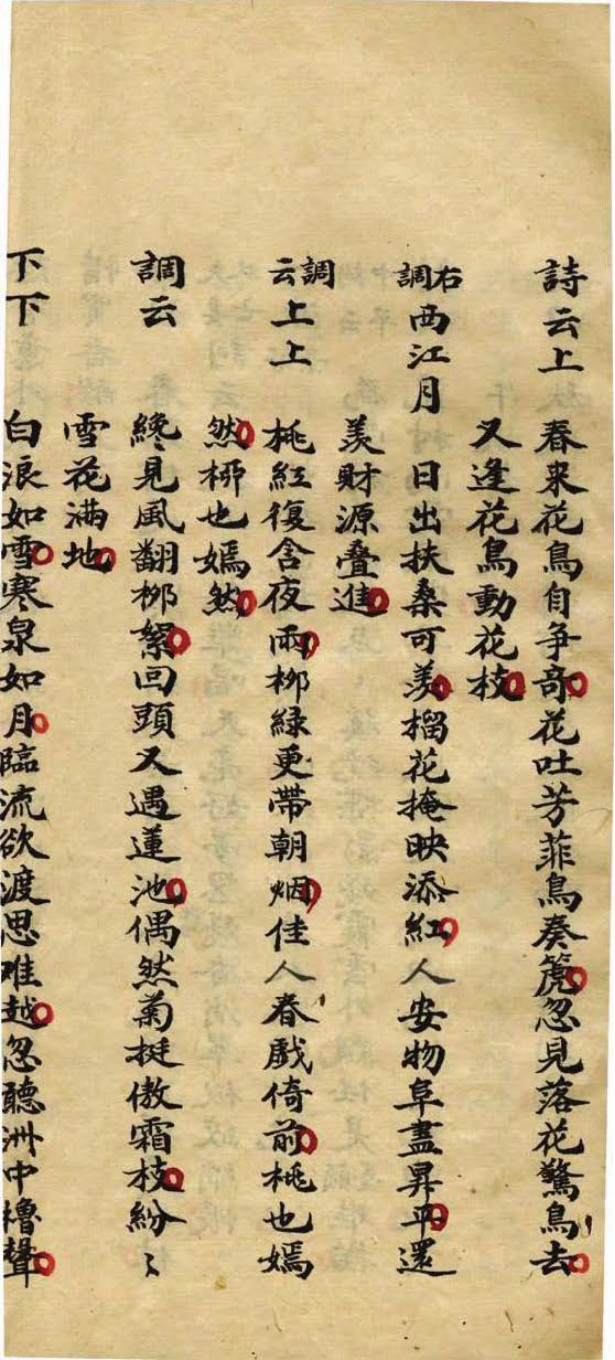 詩云上 春来花鳥自争奇花吐芳菲鳥奏箎忽見落花驚鳥去
又逢花鳥動花枝
右調西江月 日出扶桑可羡榴花掩映添紅人安物阜盡昇平還
羡財源叠進
調云上上 桃紅復含夜雨柳緑更帶朝烟佳人春戲倚前桃也嫣
然柳也嫣然
調云 纔見風翻柳絮回頭又遇蓮池偶然菊挺傲霜枝紛〻
雪花滿地
下下 白浪如雪寒泉如月臨流欲渡思难越忽聽洲中櫓聲